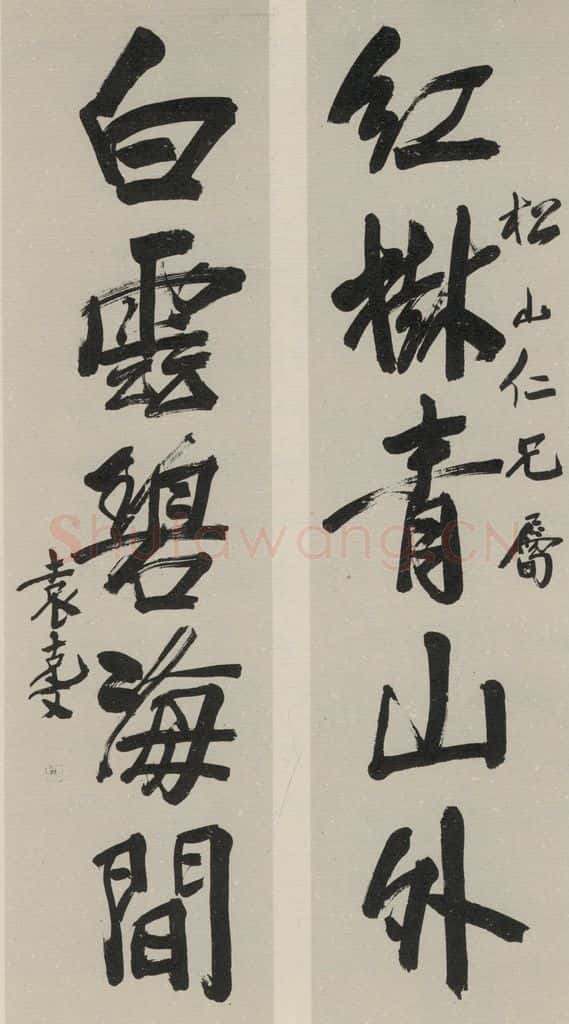 紅樹青山外
松山仁兄屬
白雲碧海間
袁克文
Shufawang.CN